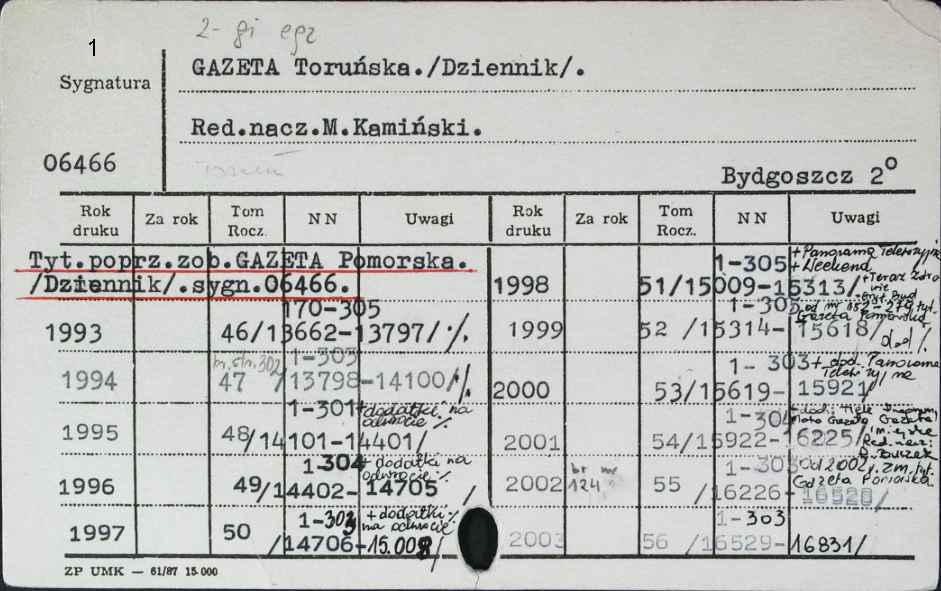 2-gi egz
1
GAZETA Toruńska./Dziennik/.
Sygnatura
Red.nacz.M.Kamiński.
06466
Toruń
Bydgoszcz 2°
Rok druku Za rok Tom Rocz. NN Uwagi Rok druku Za rok Tom Rocz. NN Uwagi
Tyt.poprz.zob.GAZETA Pomorska.
/Dziennik/.sygn.06466.
1993 46/13662-13797/ %. 170-305
1994 br. str. 302 47 /13798-14100/ %. 1-303
1995 48/14101-14401/ 1-301 + dodatki na odwrocie %
1996 49/14402-14705 / 1-304 + dodatki na odwrocie %
1997 50 /14706-15.008/ 1-303 + dodatki % na odwrocie
1998 51/15009-15313/ 1-305 + Panorama + Weekend + Teraz
1999 52 /15314-15618/ 1-305 od nr 152-279 tyt. Gazeta Pomorska dod %
2000 53/15619-15921/ 1-303 + dod. Panorama
2001 54/15922-16225/ 1-304 + dod. Gazeta Red. nacz.
2002 br nr 124 55 /16226-16528/ 1-303 Od 2002 r. zm. tyt. Gazeta Pomorska
2003 56 /16529-16831/ 1-303
ZP UMK — 61/87 15 000